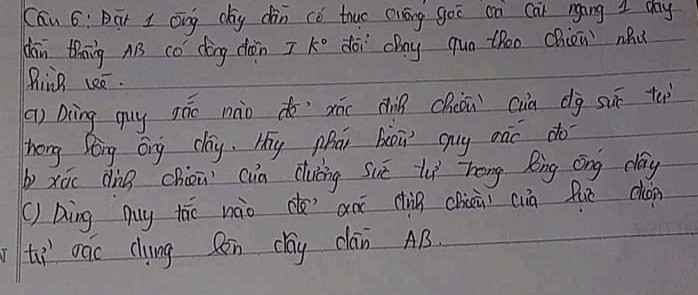 Câu 6: Đặt 1 ống dây dẫn có trục vuông góc và cắt ngang 1 dây
dẫn thẳng AB có dòng điện I ko đổi chạy qua theo chiều như
hình vẽ.
a) Dùng quy tắc nào để xác định chiều của đg sức từ
trong lòng ống dây. Hãy phát biểu quy tắc đó
b) xác định chiều của đường sức từ trong lòng ống dây
c) Dùng quy tắc nào để xác định chiều của lực điện
từ tác dụng lên dây dẫn AB.